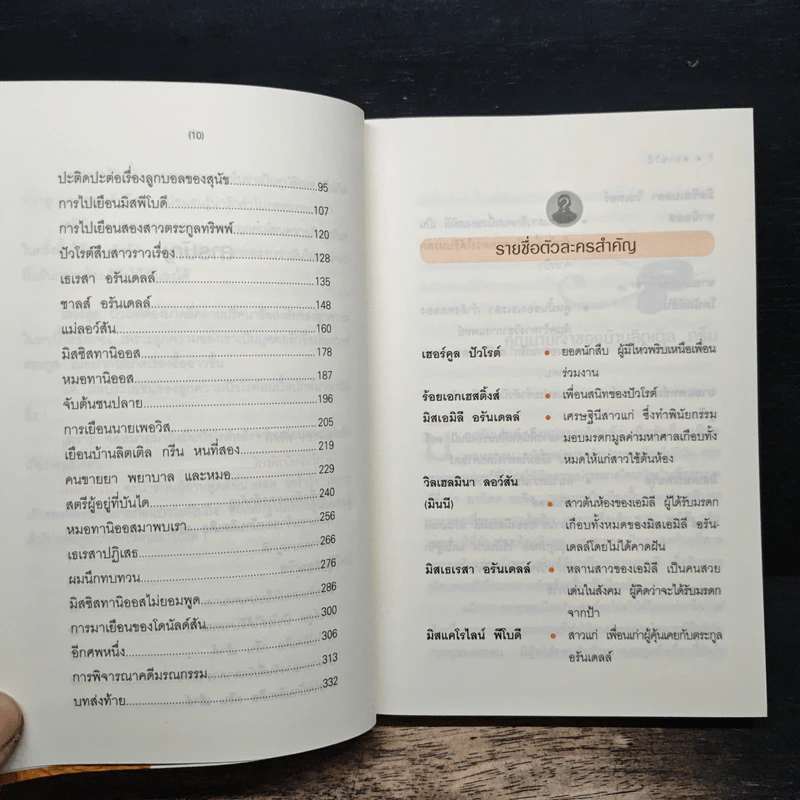 (10)
ปะติดปะต่อเรื่องลูกบอลของสุนัข 95
การไปเยือนมิสพีโบดี 107
การไปเยือนสองสาวตระกูลทริพพ์ 120
ปัวโรต์สืบสาวราวเรื่อง 128
เธเรสา อรันเดลล์ 135
ชาลส์ อรันเดลล์ 148
แม่ลอว์สัน 160
มิสซิสทานิออส 178
หมอทานิออส 187
จับต้นชนปลาย 196
การเยือนนายเพอวิส 205
เยือนบ้านลิตเติล กรีน หนที่สอง 219
คนขายยา พยาบาล และหมอ 229
สตรีผู้อยู่ที่บันได 240
หมอทานิออสมาพบเรา 256
เธเรสาปฏิเสธ 266
ผมนึกทบทวน 276
มิสซิสทานิออสไม่ยอมพูด 286
การมาเยือนของโดนัลด์สัน 300
อีกศพหนึ่ง 306
การพิจารณาคดีมรณกรรม 313
บทส่งท้าย 332
รายชื่อตัวละครสำคัญ
เฮอร์คูล ปัวโรต์ • ยอดนักสืบ ผู้มีไหวพริบเหนือเพื่อน
ร่วมงาน
ร้อยเอกเฮสติ้งส์ • เพื่อนสนิทของปัวโรต์
มิสเอมิลี อรันเดลล์ • เศรษฐินีสาวแก่ ซึ่งทำพินัยกรรม
มอบมรดกมูลค่ามหาศาลเกือบทั้ง
หมดให้แก่สาวใช้ต้นห้อง
วิลเฮลมินา ลอว์สัน
(มินนี) • สาวต้นห้องของเอมิลี ผู้ได้รับมรดก
เกือบทั้งหมดของมิสเอมิลี อรัน-
เดลล์โดยไม่ได้คาดฝัน
มิสเธเรสา อรันเดลล์ • หลานสาวของเอมิลี เป็นคนสวย
เด่นในสังคม ผู้คิดว่าจะได้รับมรดก
จากป้า
มิสแคโรไลน์ พีโบดี • สาวแก่ เพื่อนเก่าผู้คุ้นเคยกับตระกูล
อรันเดลล์